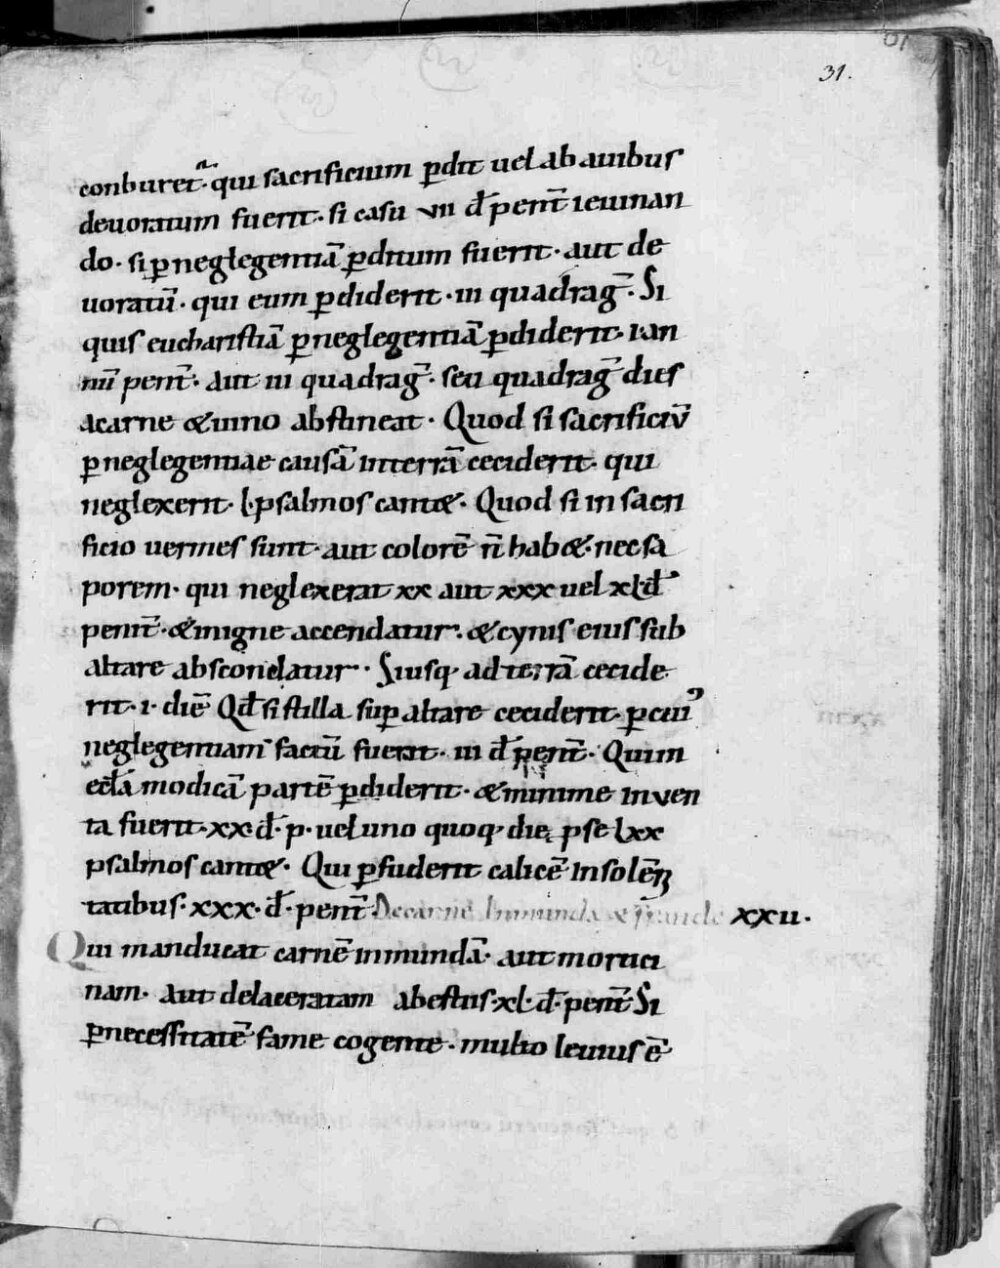 31.
conburet̄· qui sacrificium ꝑdit uel ab auibus
deuoratum fuerit· si casu vii đ penit̄ ieiunan
do· si ꝑ neglegentiā ꝑditum fuerit· aut de
uoratū· qui eum ꝑdiderit· iii quadraḡ· Si
quis eucharistiā ꝑ neglegentiā ꝑdiderit· i an
nū penit̄· aut iii quadraḡ· seu quadraḡ dies
a carne & uino abstineat· Quod si sacrificiū
ꝑ neglegentiae causā in terrā ceciderit· qui
neglexerit· l· psalmos cant&· Quod si in sacri
ficio uermes sunt· aut colorē n̄ hab&· nec sa
porem· qui neglexerat xx aut xxx uel xl đ
penit̄· & in igne accendatur· & cynis eius sub
altare abscondatur· Siusq· ad terrā cecide
rit· i· diē Qđ si stilla suꝑ altare ceciderit· ꝑ cuiꝰ
neglegentiam factū fuerit· iii đ penit̄· Qui in
eccła modicā partē ꝑdiderit· & minime inven
ta fuerit· xx· đ· p· uel uno quoq· die, pse lxx
psalmos cant&· Qui ꝑfuderit calicē in solēꝝ
tatibus· xxx· đ· penit̄ De carne Inmunda & xxu·
Qui manducat carnē inmundā· aut mortici
nam· aut delaceratam a bestiis· xl· đ· penit̄ Si
ꝑ necessitatē fame cogente· multo leuius ē